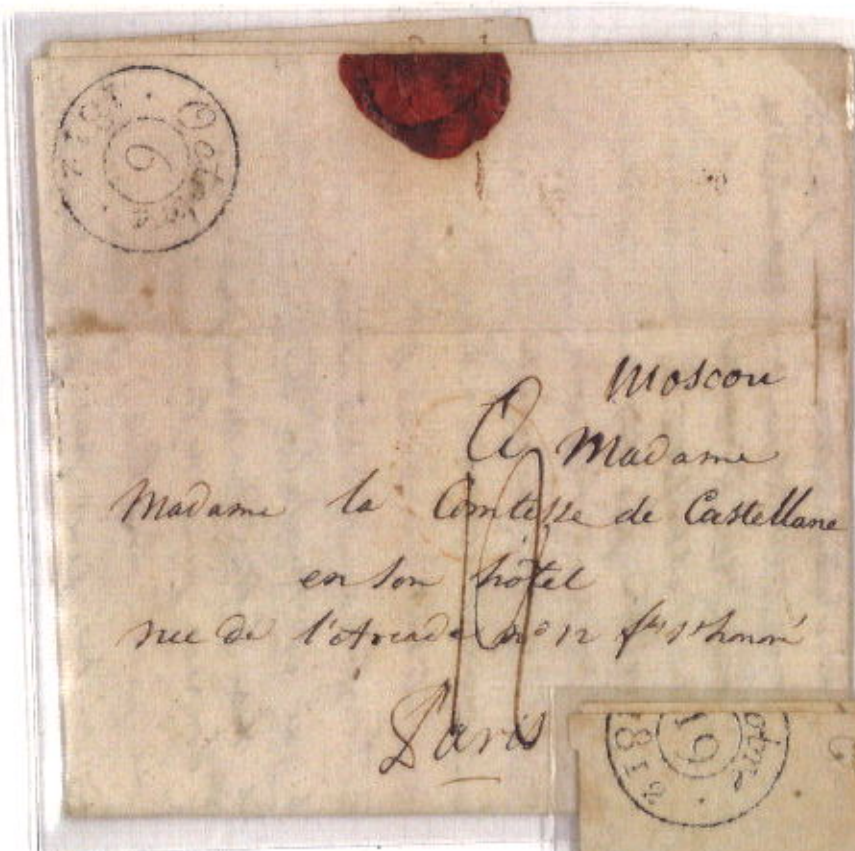 Octobre 6 1812
Moscou
A Madame
Madame la Comtesse de Castellane
en son hôtel
rue de l'Arcade no 12 fbg St honoré
Paris
19 1812